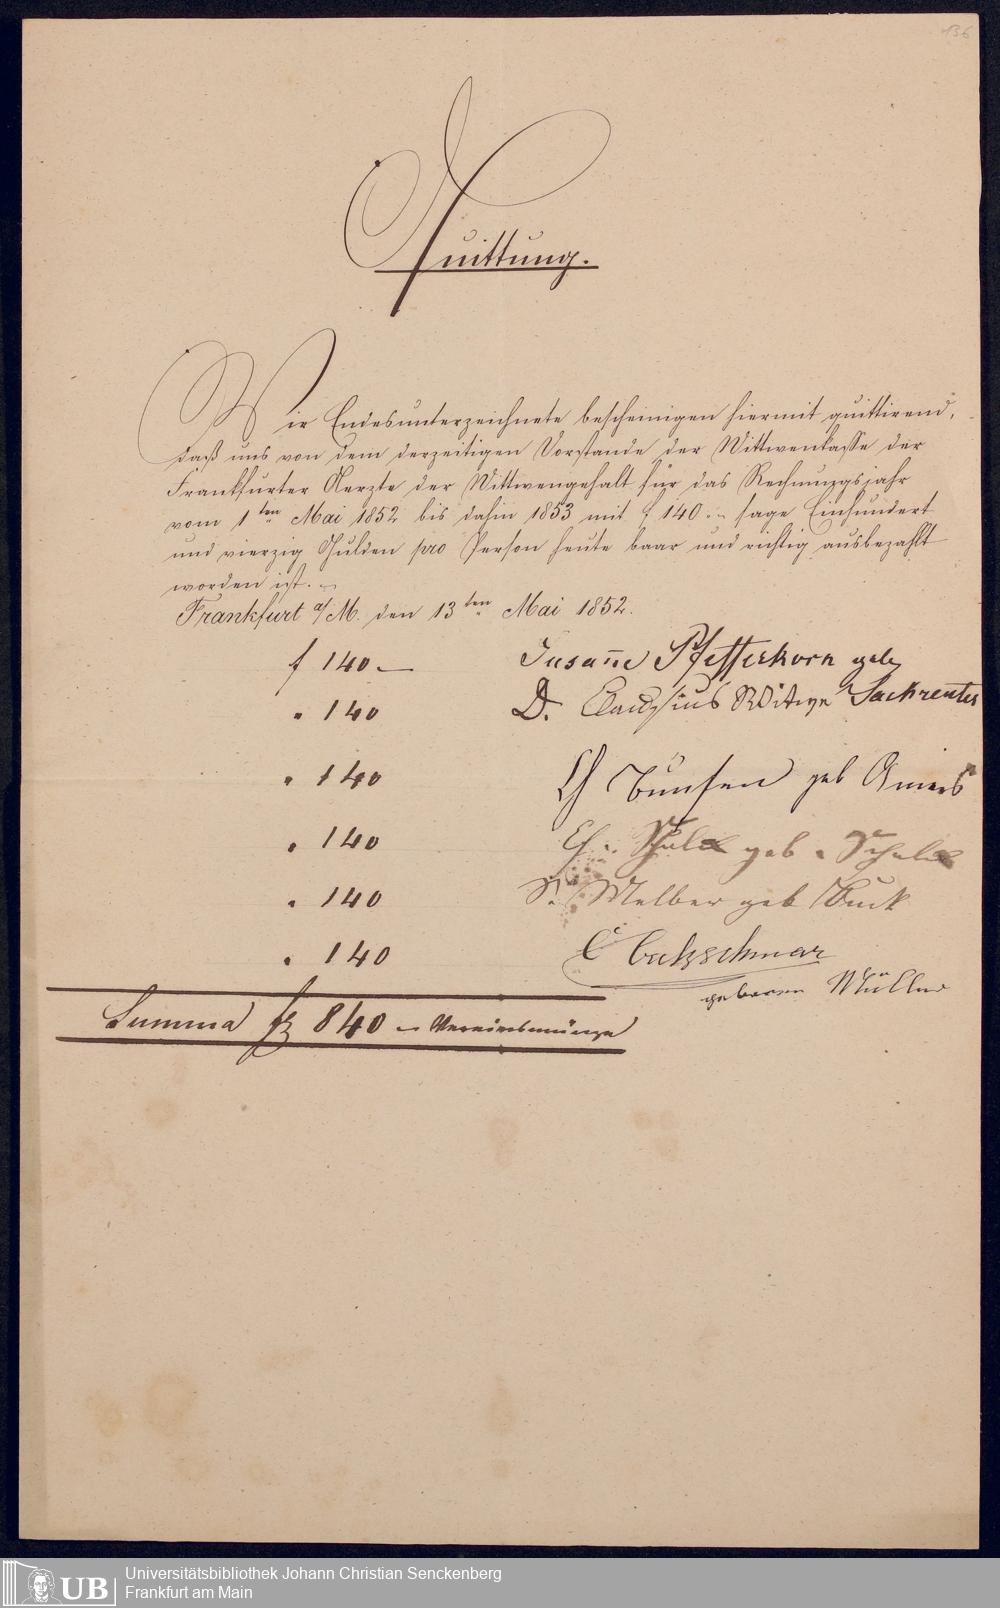 136
Quittung.
Wir Endesunterzeichnete bescheinigen hiermit quittirend,
daß uns von dem derzeitigen Vorstande der Wittwenkasse der
Frankfurter Aerzte der Wittwengehalt für das Rechnungsjahr
vom 1ten Mai 1852 bis dahin 1853 mit f 140.– sage Einhundert
und vierzig Gulden pro Person heute baar und richtig ausbezahlt
worden ist. –
Frankfurt a/M. den 13ten Mai 1852.
f 140 – Susane Pfefferkorn geb
" 140 D. Witwe Sackreuter
" 140 Ch Bunsen geb
" 140 geb.
" 140 S. Melber geb Buck
" 140 C
geboren Müller
Summa f 840 – Vereinsmünze
UB Universitätsbibliothek Johann Christian Senckenberg
Frankfurt am Main